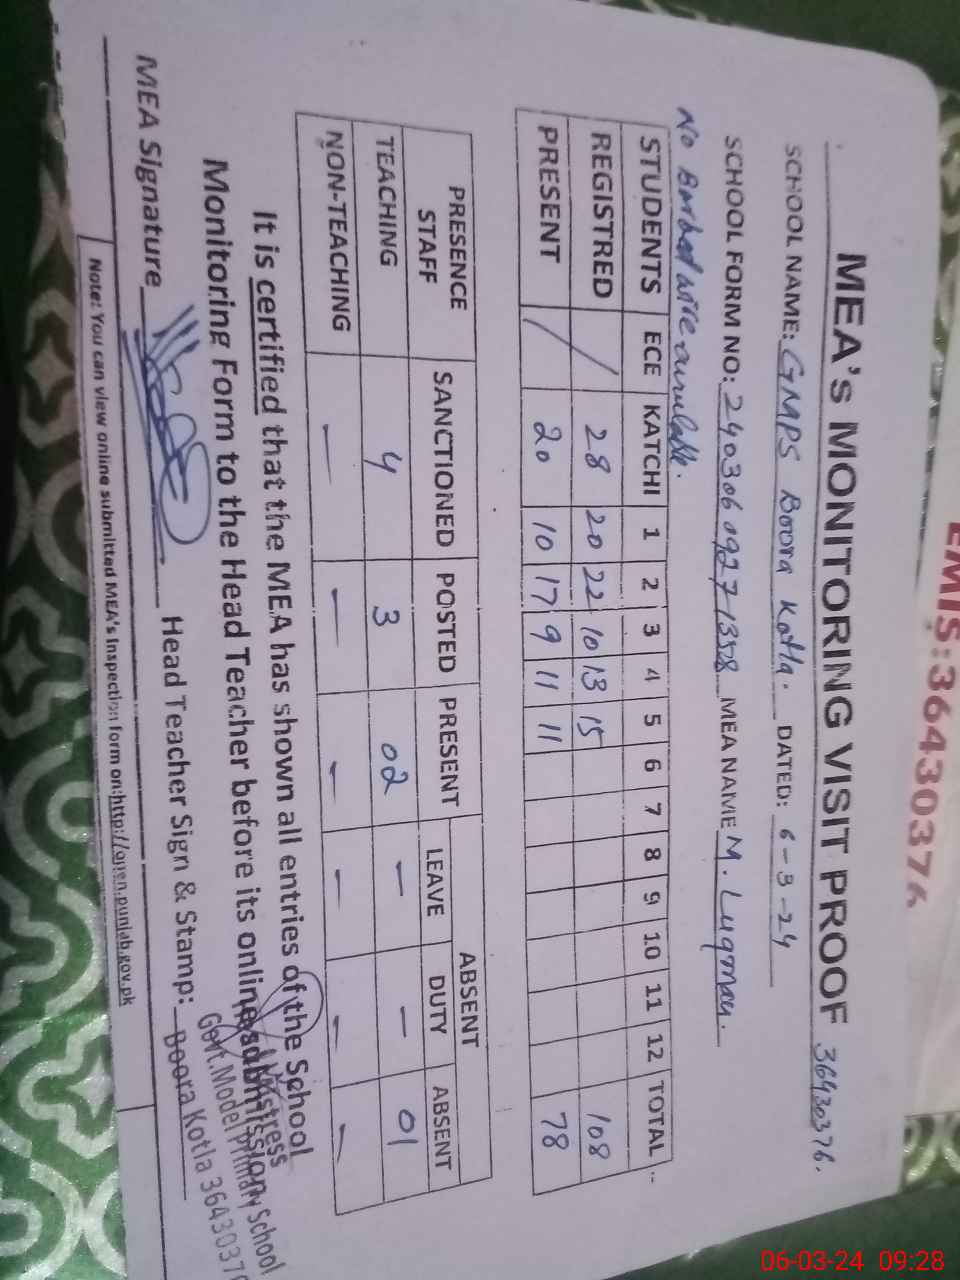 EMIS:36430376
MEA's MONITORING VISIT PROOF 36430376.
SCHOOL NAME: GMPS Boora Kotla. DATED: 6-3-24
SCHOOL FORM NO: 24030609271358 MEA NAME M. Luqman.
No Barbed wire available.
STUDENTS ECE KATCHI 1 2 3 4 5 6 7 8 9 10 11 12 TOTAL
REGISTRED / 28 20 22 10 13 15 108
PRESENT / 20 10 17 9 11 11 78
PRESENCE STAFF SANCTIONED POSTED PRESENT ABSENT
LEAVE DUTY ABSENT
TEACHING 4 3 02 — — 01
NON-TEACHING — — — — — —
It is certified that the MEA has shown all entries of the School
Monitoring Form to the Head Teacher before its online submission
MEA Signature Head Teacher Sign & Stamp:
Govt. Model Primary School
Boora Kotla 36430376
Note: You can view online submitted MEA's Inspection form on:http://open.punjab.gov.pk
06-03-24 09:28